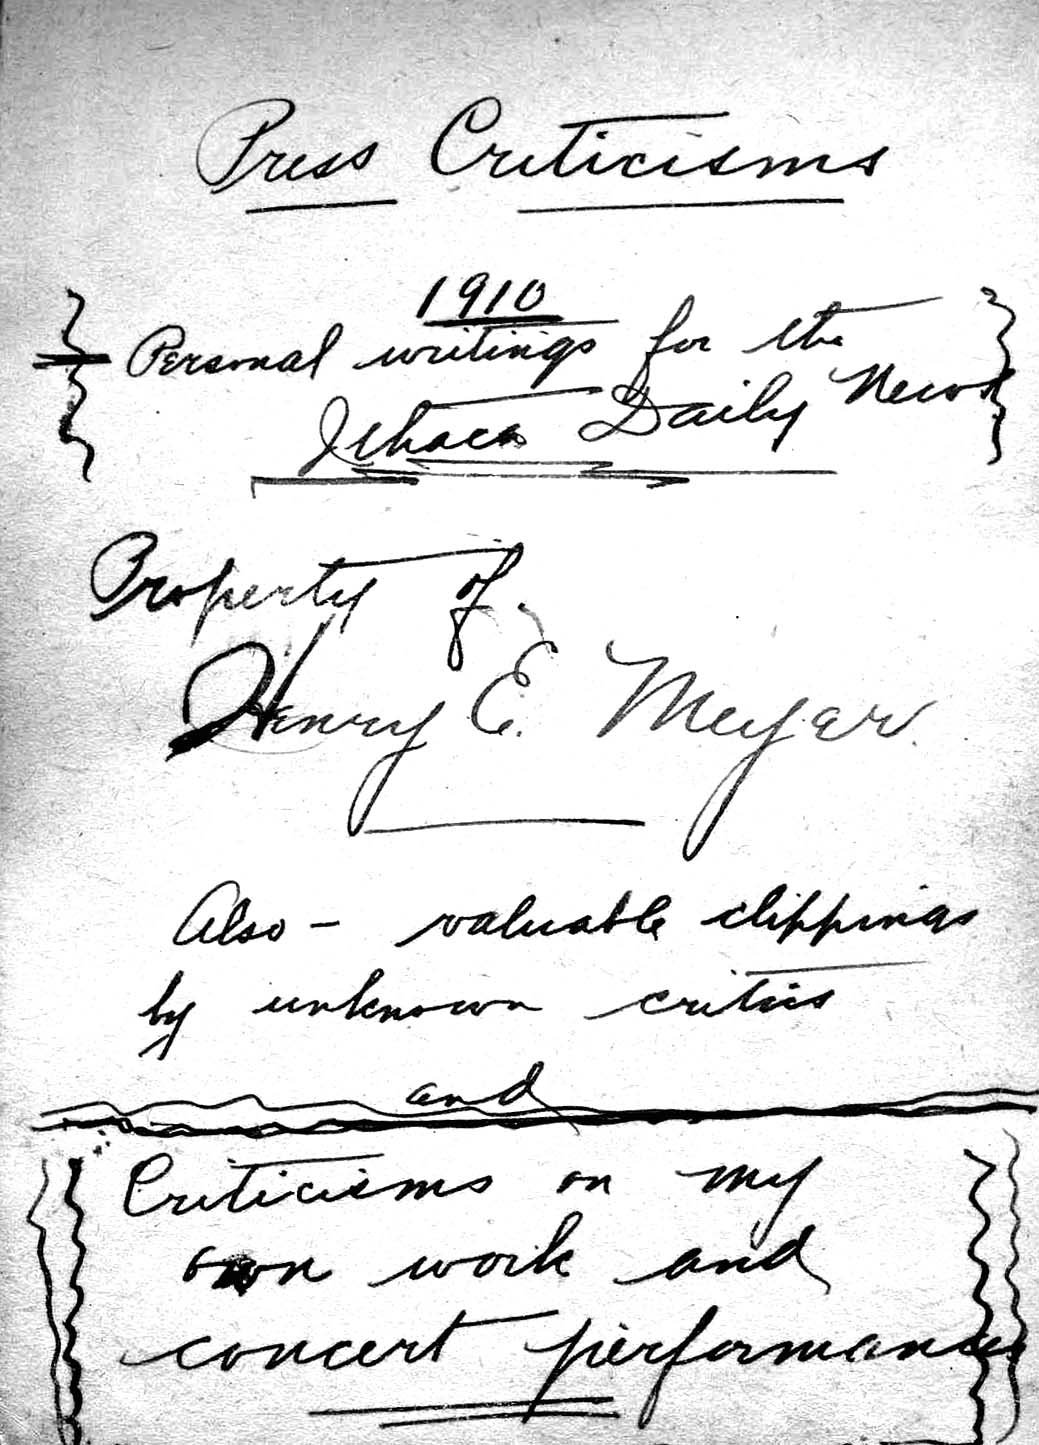 Press Criticisms
1910
Personal writings for the
Ithaca Daily News
Property of
Henry E. Meyer
Also - valuable clippings
by unknown critics
and
Criticisms on my
own work and
concert performances